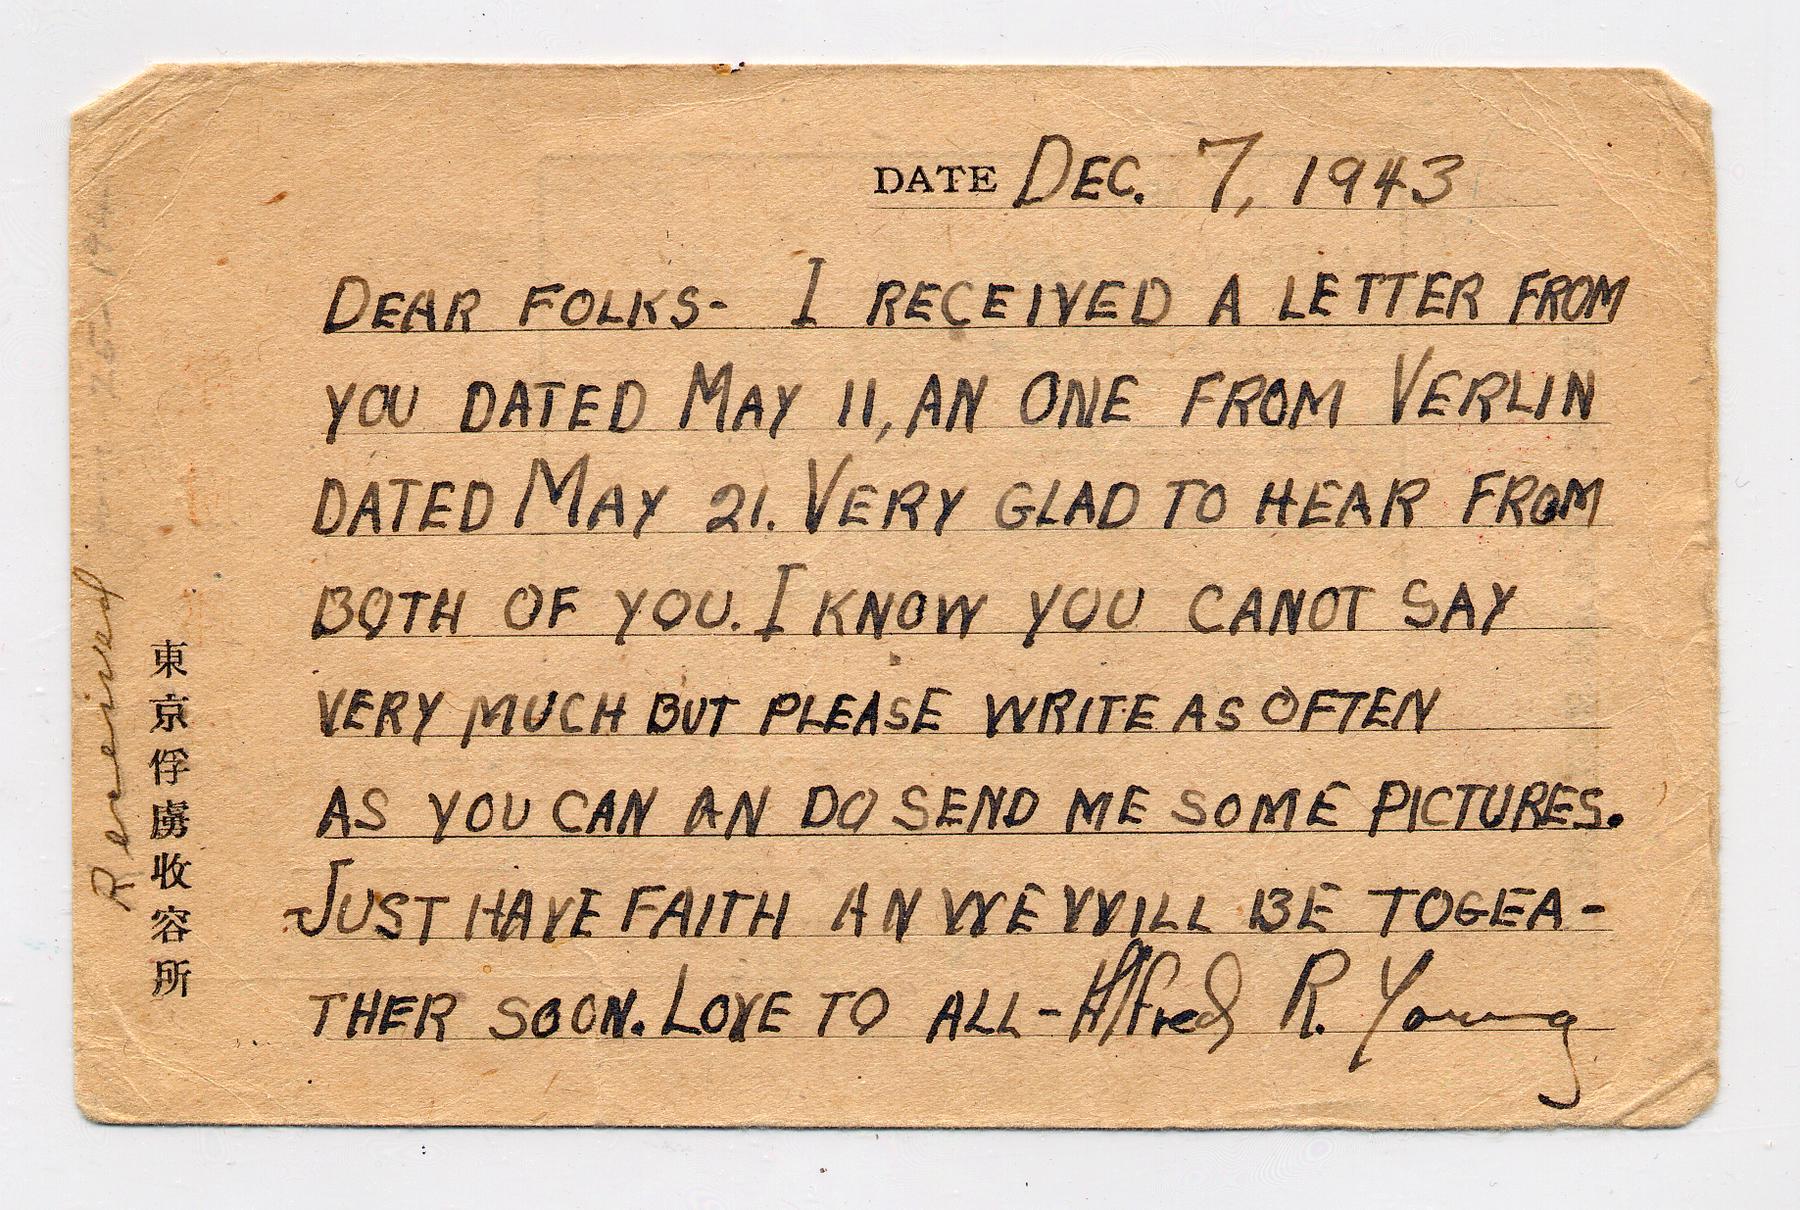 DATE DEC. 7, 1943
DEAR FOLKS- I RECEIVED A LETTER FROM
YOU DATED MAY 11, AN ONE FROM VERLIN
DATED MAY 21. VERY GLAD TO HEAR FROM
BOTH OF YOU. I KNOW YOU CANOT SAY
VERY MUCH BUT PLEASE WRITE AS OFTEN
AS YOU CAN AN DO SEND ME SOME PICTURES.
JUST HAVE FAITH AN WE WILL BE TOGEA-
THER SOON. LOVE TO ALL- Alfred R. Young
東京俘虜収容所
Received